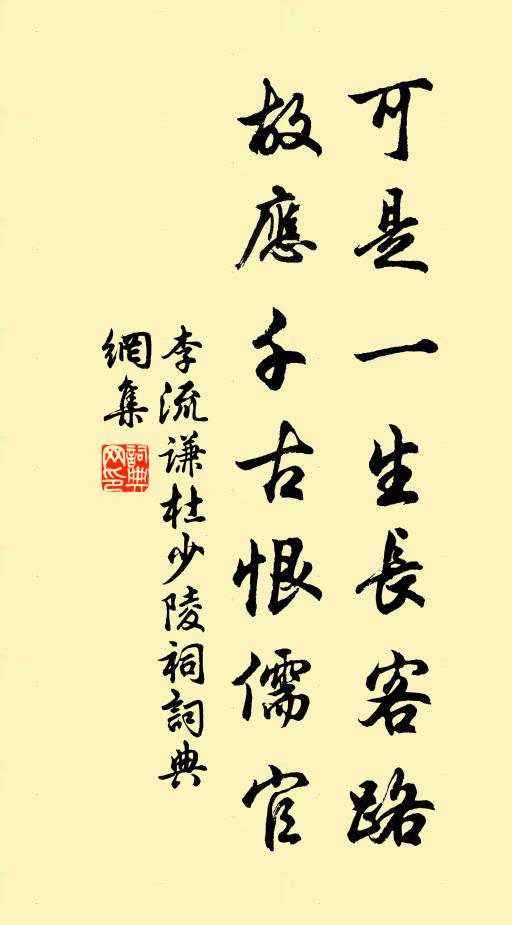 可是一生長客路
故應千古恨儒官
李流謙杜少陵祠詞典
網集
詞典
网印